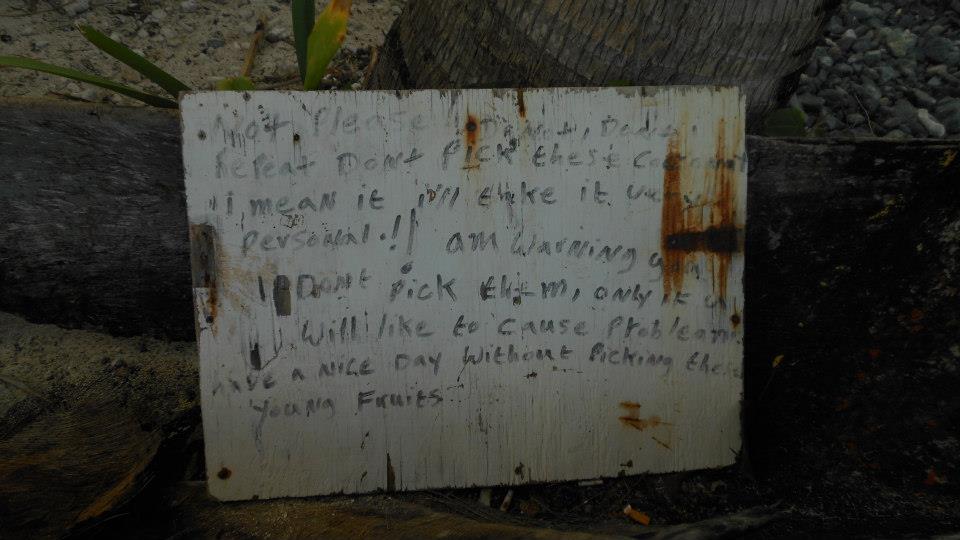 Not Please ! Do Not,
Repeat Dont Pick these Coconut
"i mean it i'll take it very
Personal.!! am Warning you
Dont Pick them, only if u
Will like to cause Problem
Have a NICE Day Without Picking these
Young Fruits